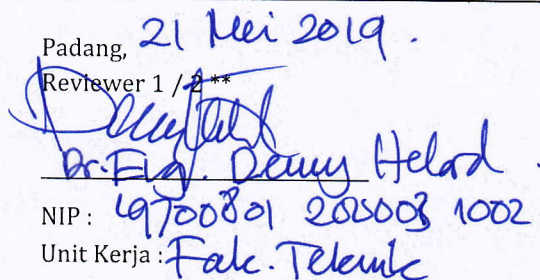 Padang, 21 Mei 2019.
Reviewer 1 / 2 **
Dr. Eng. Denny Helard
NIP : 19700801 202003 1002
Unit Kerja : Fak. Teknik